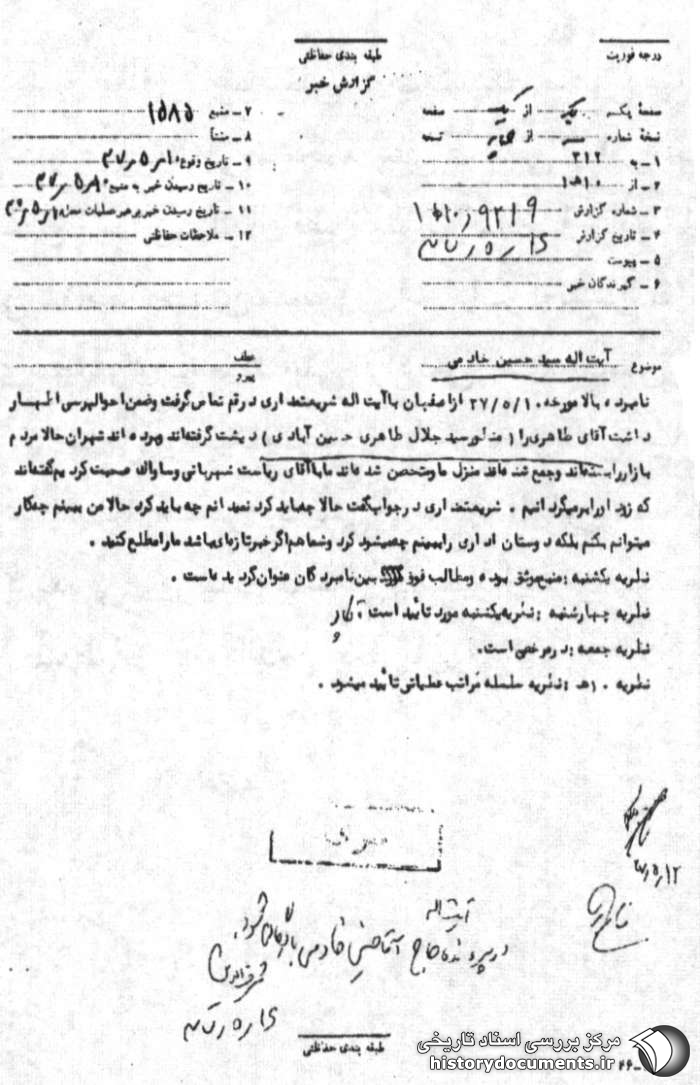 درجه فوریت
طبقه بندی حفاظتی
گزارش خبر
صفحهٔ یکم یک از یک صفحه
نسخهٔ شماره از نسخه
۱ـ به ۳۱۲
۲ـ از ۱۰ه‍
۳ـ شماره گزارش ۹۲۱۹/۱۰ه‍
۴ـ تاریخ گزارش
۵ـ پیوست
۶ـ گیرندگان خبر
۷ـ منبع ۱۵۸۵
۸ـ منشأ
۹ـ تاریخ وقوع
۱۰ـ تاریخ رسیدن خبر به منبع
۱۱ـ تاریخ رسیدن خبر برهبر عملیات
۱۲ـ ملاحظات حفاظتی
موضوع آیت اله سید حسین خادمی
عطف
پیرو
نامبرده بالا مورخه ۳۷/۵/۱۰ از اصفهان با آیت اله شریعتمداری در قم تماس گرفت و ضمن احوالپرسی اظهار
داشت آقای طاهری را (منظور سید جلال طاهری حسین آبادی) دیشب گرفته‌اند و برده‌اند تهران حالا مردم
بازار را بسته‌اند و جمع شده‌اند منزل ما و متحصن شده‌اند ما با آقای ریاست شهربانی و ساواک صحبت کردیم گفته‌اند
که زود او را برمیگردانیم . شریعتمداری در جواب گفت حالا چه باید کرد نمیدانم چه باید کرد حالا من ببینم چکار
میتوانم بکنم بلکه دوستان اداری را ببینم چه میشود کرد و شما هم اگر خبر تازه‌ای باشد ما را مطلع کنید .
نظریه یکشنبه : منبع موثق بوده و مطالب فوق بین نامبردگان عنوان گردیده است .
نظریه چهارشنبه : نظریه یکشنبه مورد تائید است .
نظریه جمعه : در مرخصی است .
نظریه ۱۰ه‍ : نظریه سلسله مراتب عملیاتی تائید میشود .
آیت اله
در پرونده حاج آقا حسین خادمی بایگانی شود.
طبقه بندی حفاظتی
مرکز بررسی اسناد تاریخی
historydocuments.ir